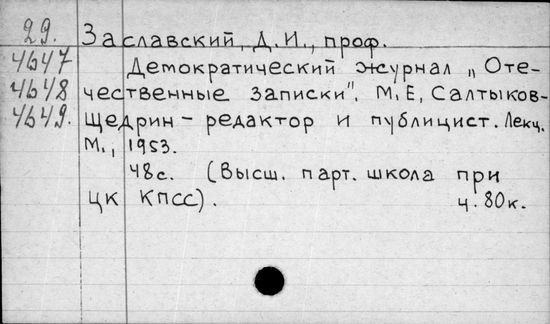 29. Заславский, Д.И., проф.
4647 Демократический журнал „Оте-
4648 чественные записки". М.Е. Салтыков-
4649. Щедрин – редактор и публицист. Лекц.
М., 1953.
48с. (Высш. парт. школа при
ЦК КПСС). ц. 80к.